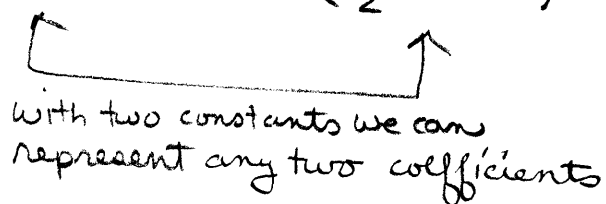 2
with two constants we can
represent any two coefficients